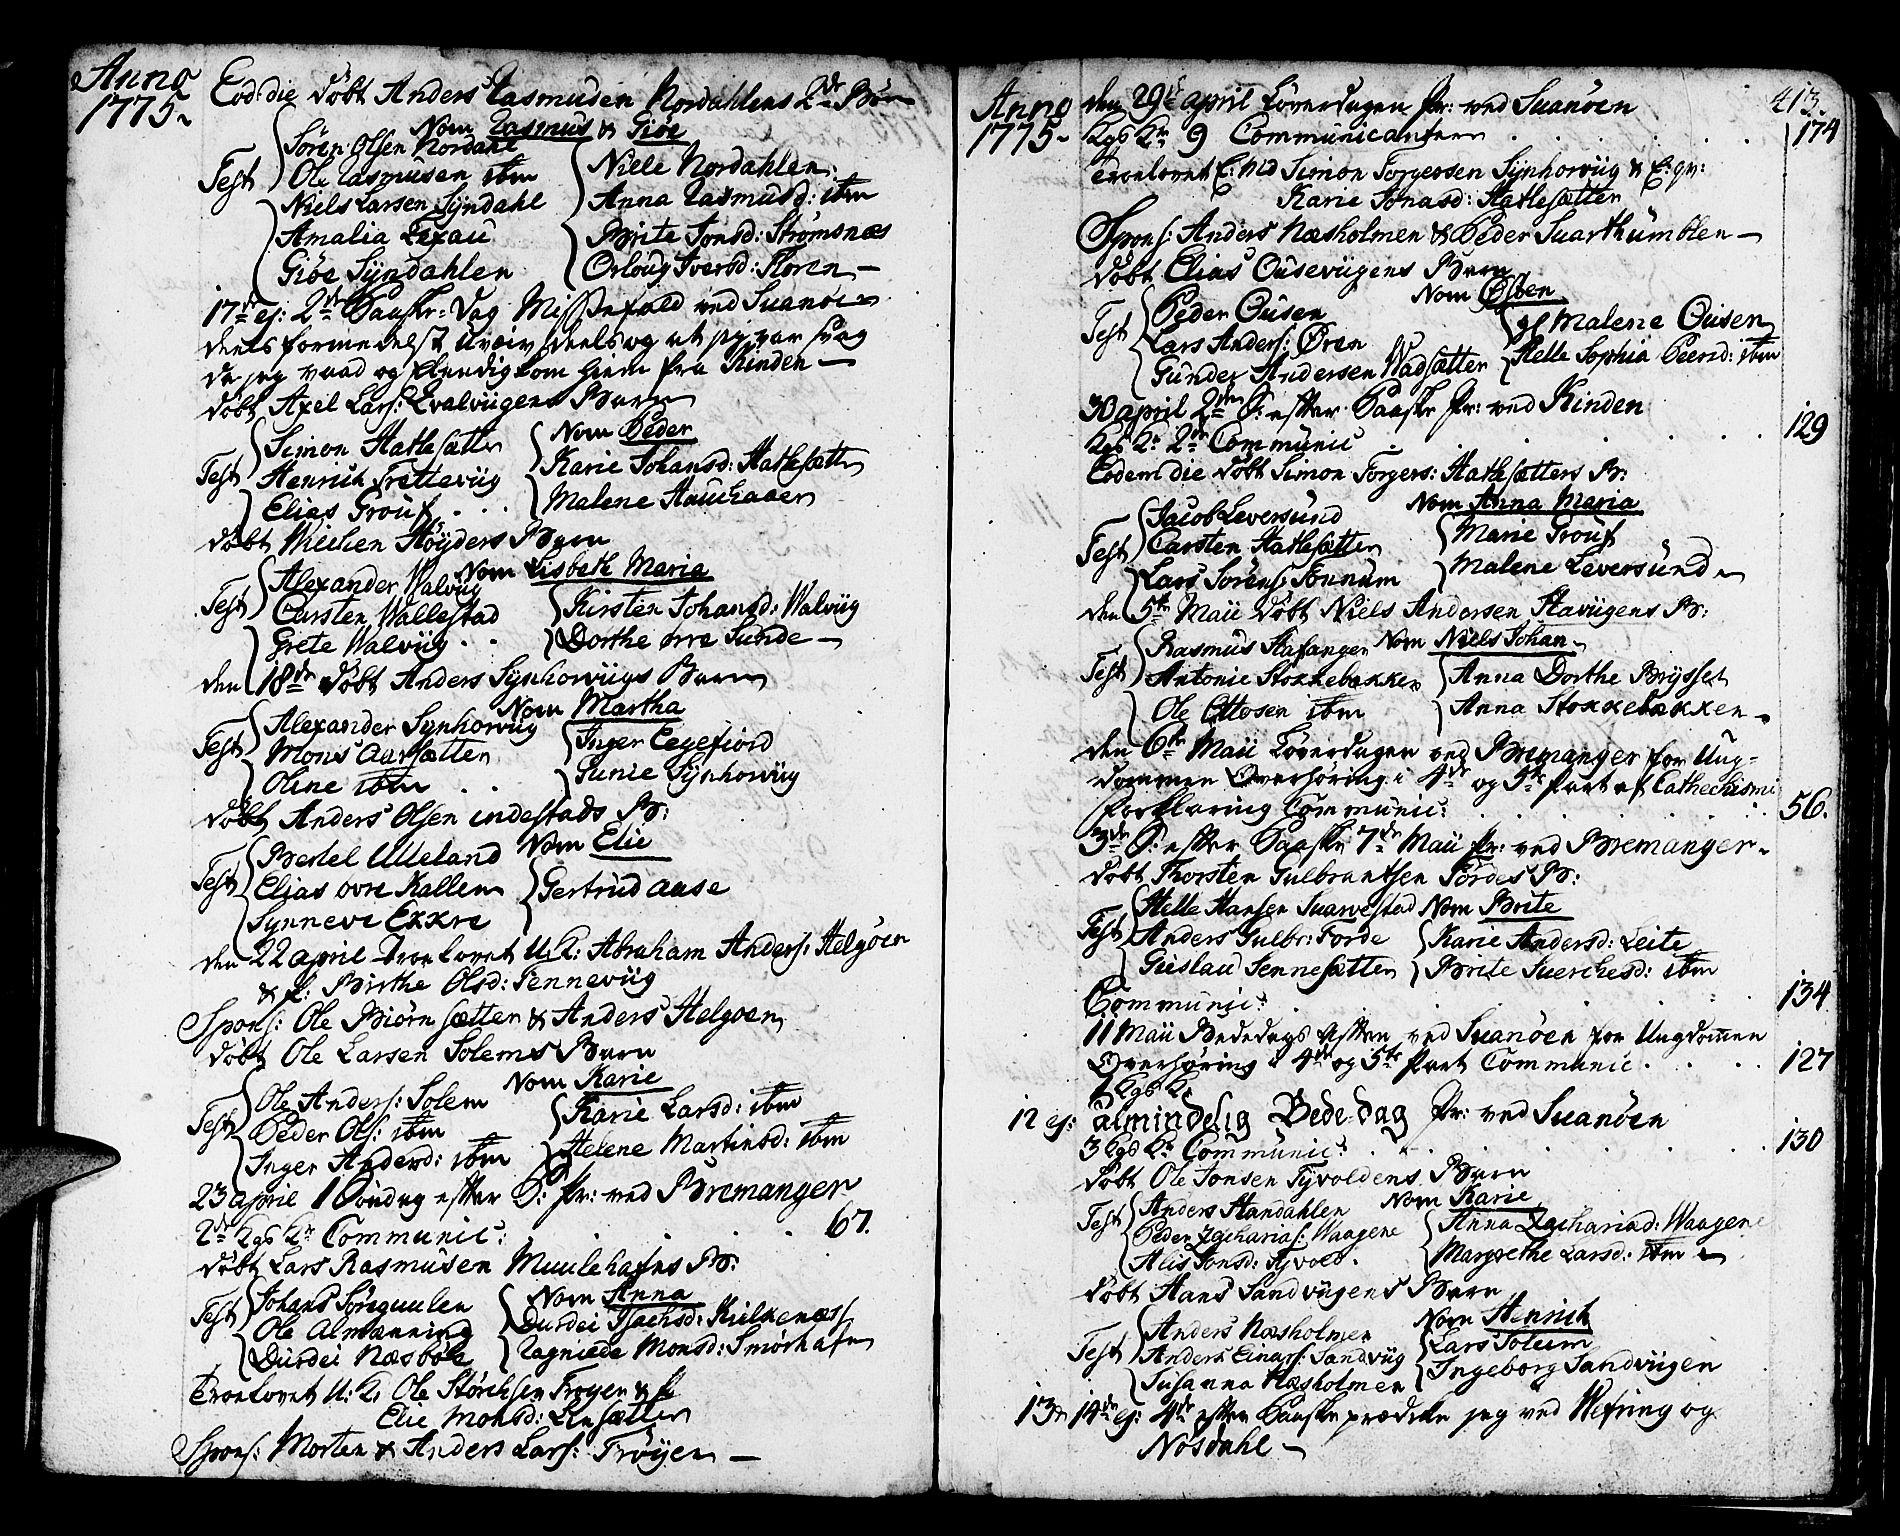 Anno
1775.
Eod: die döbt Anders Rasmusen Nordahlens 2de Börn
Nom Rasmus & Giöe
Test
Sören Olsen Nordahl
Ole Rasmusen ibm
Niels Larsen Syndahl
Amalia Lexau
Giöe Syndahlen
Niele Nordahlen
Anna Rasmusd: ibm
Brite Jonsd: Strömsnæs
Orloug Iversd: Floren
17de ej: 2den Paaske-Dag Missefald ved Suanöen
deels formedelst Uveir deels og at jeg var svag
da jeg vaad og Elendig kom hiem fra Kinden
döbt Axel Lars: Evalviigens Barn
Nom Peder
Test
Simon Hatlesætter
Henrich Tretteviig
Elias Grouf
Karie Johansd: Hatlesætter
Malene Hauchaaen
döbt Michen Höyders Barn
Nom Lisbeth Maria
Test
Alexander Walviig
Carsten Wallestad
Grete Walviig
Kirsten Johansd: Walviig
Dorthe øvre Sunde
den 18de döbt Anders Synhorviigs Barn
Nom Martha
Test
Alexander Synhorviig
Mons Aarsætter
Oline ibm
Inger Eegefiord
Sunie Synhorviig
döbt Anders Olsen indestads B:
Nom Elie
Test
Bertel Ulleland
Elias ovre Kallem
Synneve Exkre
Gertrud aase
den 22 april Troelovet U: K: Abraham Anders: Helgöen
& P: Birthe Olsd: Tenneviig
Spons: Ole Biörnsætter & Anders Helgoen
döbt Ole Larsen Solems Barn
Nom Karie
Test
Ole Anders: Solem
Peder Ols: ibm
Inger Andersd: ibm
Karie Larsd: ibm
Helene Martinsd: ibm
23 april 1 Söndag efter P: Pr: ved Bremanger
2de Kgs K: Communic: 67.
döbt Lars Rasmusen Muulehafns B:
Nom Anna
Test
Johans Söreguulen
Ole Almenning
Durdei Næsböe
Durdei Isachsd: Kielkenæss
Ragniede Monsd: Smörhafn
Troelovet U: K: Ole Störchsen Tröyen & P:
Elie Monsd: Liesætter
Spons: Morten & Anders Lars: Tröyen
Anno
1775.
413.
den 29de april Löverdagen Pr: ved Suanöen
Kgs K: 9 Communicanter 174
Troelovet E: Md Simon Torgersen Synhorviig & E: qv:
Karie Jonasd: Hatlesætter
Spons: Anders Næsholmen & Peder Suarthumblen
döbt Elias Ousevügens Barn
Nom Esben
Test
Peder Ousen
Lars Anders: Øren
Gunder Andersen Wadsætter
gl Malene Ousen
Helle Sophia Peersd: ibm
30 april 2den S: efter Paaske Pr: ved Kinden
Kgs K: 2de Communic 129
Eodem die döbt Simon Torgers: Hatlesætters B:
Nom Anna Maria
Test
Jacob Leversund
Carsten Hatlesætter
Lars Sörens: Tonnum
Marie Grouf
Malene Leversund
den 5te Maii döbt Niels Andersen Haviigens B:
Nom Niels Johan
Test
Rasmus Hafanger
Antonie Stokkebakken
Ole Ottosen ibm
Anna Dorthe Brysset
Anna Stokkebakken
den 6te Maii Löverdagen ved Bremanger for Ung-
dommen Overhöring i 4de og 5te Part af Cathechismi
Forklaring Communic: 56.
3de S: efter Paaske 7de Maii Pr: ved Bremanger
döbt Thorsten Gulbrantsen Fördes B:
Nom Brite
Test
Helle Hansen Suarvestad
Anders Gulbr: Forde
Gieslau Sennesætter
Karie Andersd: Leite
Brite Suerchesd: ibm
Communic: 134
11 Maii Bededags Aften ved Suanöen for Ungdommen
Overhöring i 4de og 5te Part Communic 127
1 Kgs K:
12 ej: almindelig Bede-dag Pr: ved Suanöen
3 Kgs K: Communic: 130
döbt Ole Jonsen Tyvoldens Barn
Nom Karie
Test
Anders Handahlen
Peder Zacharias: Waagene
Alis Jonsd: Tyvold
Anna Zachariad: Waagene
Margrethe Larsd: ibm
döbt Hans Sandviigens Barn
Nom Henrich
Test
Anders Næsholmen
Anders Einars: Sandviig
Susanna Næsholmen
Lars Soleim
Ingeborg Sandviigen
13 & 14de ej: 4de efter Paaske prædike jeg ved Wefring og
Nösdahl